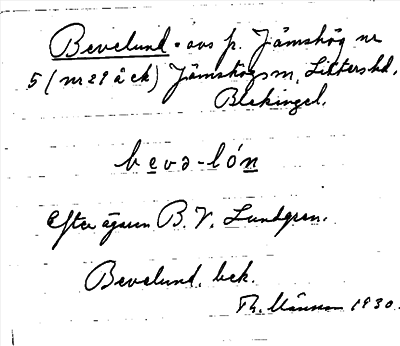 Bevelund - avs p. Jämshög nr
5 (nr 29 å ek) Jämshögs sn, Listers hd,
Blekinge l.
bevə-lón
Efter ägaren B. V. Lundgren.
Bevelund, bek.
Th. 1930.